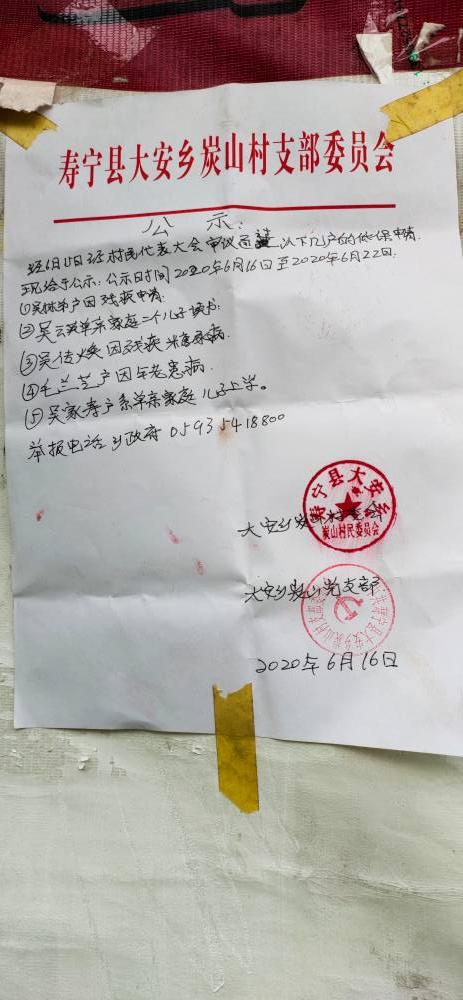 寿宁县大安乡炭山村支部委员会
公示:
经6月15日经村民代表大会审议通过 以下几户的低保申请
现给予公示:公示日时间2020年6月16日至2020年6月22日.
①吴 户因残疾申请.
②吴云 单亲家庭二个儿子读书.
③吴传焕因残疾 病.
④毛兰芝户因年老患病.
⑤吴家寿户系单亲家庭儿子上学。
举报电话乡政府 05935418800
大安乡炭山村委会
寿宁县大安乡
炭山村民委员会
大安乡炭山党支部
2020年6月16日